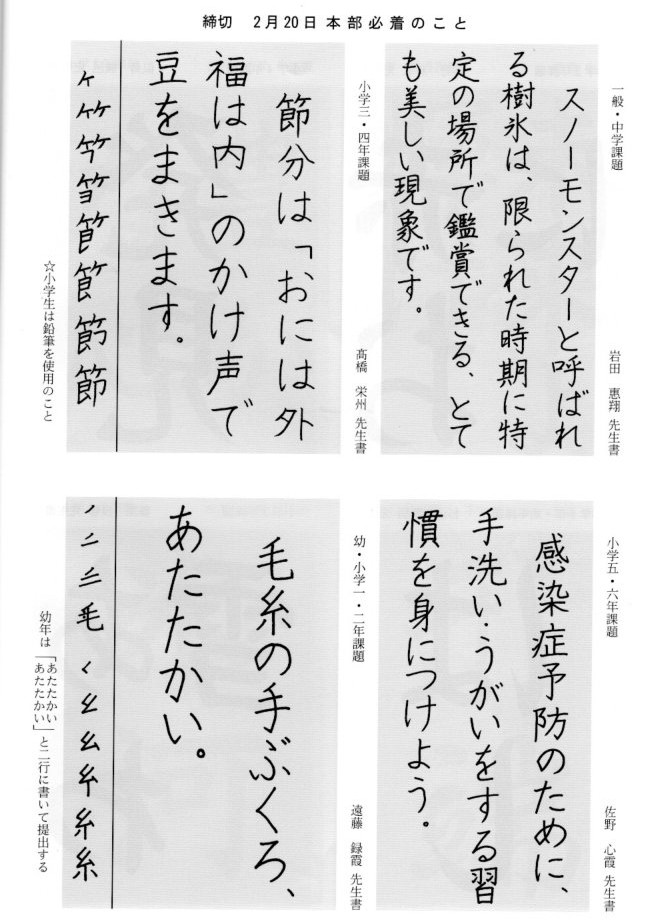 締切　2月20日本部必着のこと
一般・中学課題
スノーモンスターと呼ばれ
る樹氷は、限られた時期に特
定の場所で鑑賞できる、とて
も美しい現象です。
岩田　惠翔 先生書
小学三・四年課題
節分は「おには外
福は内」のかけ声で
豆をまきます。
髙橋　栄州 先生書
節
☆小学生は鉛筆を使用のこと
小学五・六年課題
感染症予防のために、
手洗い・うがいをする習
慣を身につけよう。
佐野　心霞 先生書
幼・小学一・二年課題
毛糸の手ぶくろ、
あたたかい。
遠藤　録霞 先生書
毛 糸
幼年は「あたたかい
あたたかい」と二行に書いて提出する